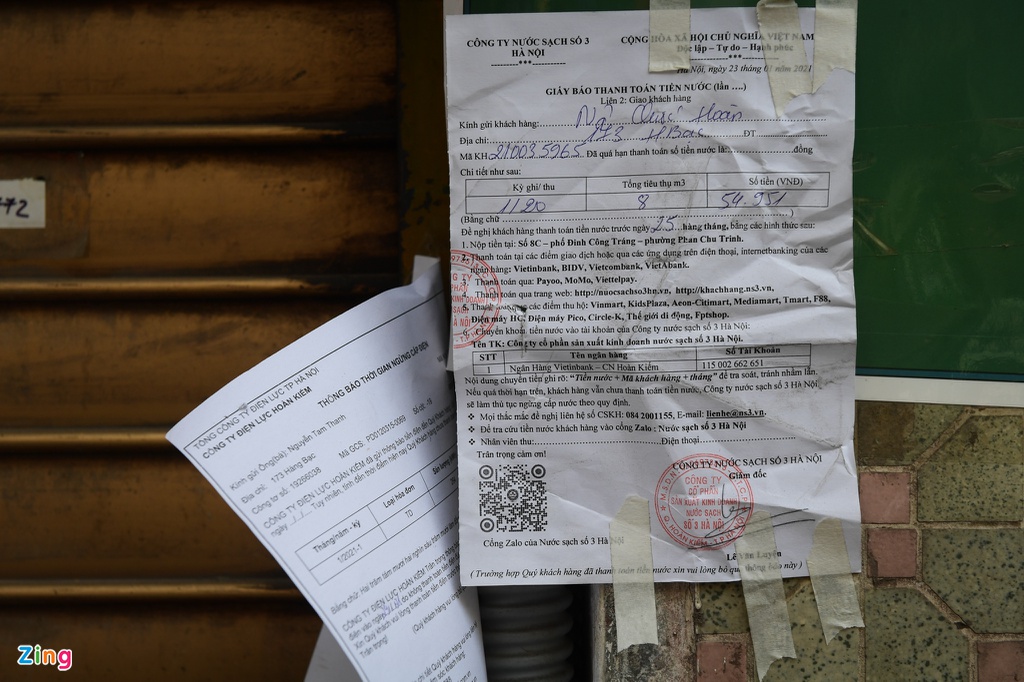 CÔNG TY NƯỚC SẠCH SỐ 3
HÀ NỘI
CỘNG HÒA XÃ HỘI CHỦ NGHĨA VIỆT NAM
Độc lập – Tự do – Hạnh phúc
Hà Nội, ngày 23 tháng 01 năm 2021
GIẤY BÁO THANH TOÁN TIỀN NƯỚC (lần ....)
Liên 2: Giao khách hàng
Kính gửi khách hàng: Ngô Quý Hoàn
Địa chỉ: 173 H Bạc ĐT
Mã KH 210035965 Đã quá hạn thanh toán số tiền nước là: đồng
Chi tiết như sau:
Kỳ ghi/ thu Tổng tiêu thụ m3 Số tiền (VNĐ)
1/20 8 54.951
(Bằng chữ )
Đề nghị khách hàng thanh toán tiền nước trước ngày 25 hàng tháng, bằng các hình thức sau:
1. Nộp tiền tại: Số 8C – phố Đinh Công Tráng – phường Phan Chu Trinh.
2. Thanh toán tại các điểm giao dịch hoặc qua các ứng dụng trên điện thoại, internetbanking của các
ngân hàng: Vietinbank, BIDV, Vietcombank, VietAbank.
3. Thanh toán qua: Payoo, MoMo, Viettelpay.
Thanh toán qua trang web: http://nuocsachso3hn.vn, http://khachhang.ns3.vn,
5. Thanh toán tại các điểm thu hộ: Vinmart, KidsPlaza, Aeon-Citimart, Mediamart, Tmart, F88,
Điện máy HC, Điện máy Pico, Circle-K, Thế giới di động, Fptshop.
6. Chuyển khoản tiền nước vào tài khoản của Công ty nước sạch số 3 Hà Nội:
Tên TK: Công ty cổ phần sản xuất kinh doanh nước sạch số 3 Hà Nội.
STT Tên ngân hàng Số Tài Khoản
1 Ngân Hàng Vietinbank – CN Hoàn Kiếm 115 002 662 651
Nội dung chuyển tiền ghi rõ: “Tiền nước + Mã khách hàng + tháng” để tra soát, tránh nhầm lẫn.
Nếu quá thời hạn trên, khách hàng vẫn chưa thanh toán tiền nước, Công ty nước sạch số 3 Hà Nội
sẽ làm thủ tục ngừng cấp nước theo quy định.
❖ Mọi thắc mắc đề nghị liên hệ số CSKH: 084 2001155, E-mail: lienhe@ns3.vn.
❖ Để tra cứu tiền nước khách hàng vào cổng Zalo : Nước sạch số 3 Hà Nội
❖ Nhân viên thu: Điện thoại
Trân trọng cảm ơn!
CÔNG TY NƯỚC SẠCH SỐ 3 HÀ NỘI
Giám đốc
CÔNG TY
CỔ PHẦN
SẢN XUẤT KINH DOANH
NƯỚC SẠCH
SỐ 3 HÀ NỘI
Cổng Zalo của Nước sạch số 3 Hà Nội
Lê Văn Luyến
( Trường hợp Quý khách hàng đã thanh toán tiền nước xin vui lòng bỏ qua thông báo này )
TỔNG CÔNG TY ĐIỆN LỰC TP HÀ NỘI
CÔNG TY ĐIỆN LỰC HOÀN KIẾM
THÔNG BÁO THỜI GIAN NGỪNG CẤP ĐIỆN
Kính gửi Ông(bà): Nguyễn Tam Thanh
Địa chỉ: 173 Hàng Bạc
Công tơ số: 19266038
Mã GCS: PD0120315-0069
CÔNG TY ĐIỆN LỰC HOÀN KIẾM đã gửi thông báo tiền điện đến
ngày / / Tuy nhiên, tính đến thời điểm hiện nay Quý Khách hàng chưa
Tháng/năm - kỳ Loại hóa đơn
1/2021-1 TD
Bằng chữ: Hai trăm tám mươi hai nghìn sáu trăm
CÔNG TY ĐIỆN LỰC HOÀN KIẾM Trân trọng thông
Zing